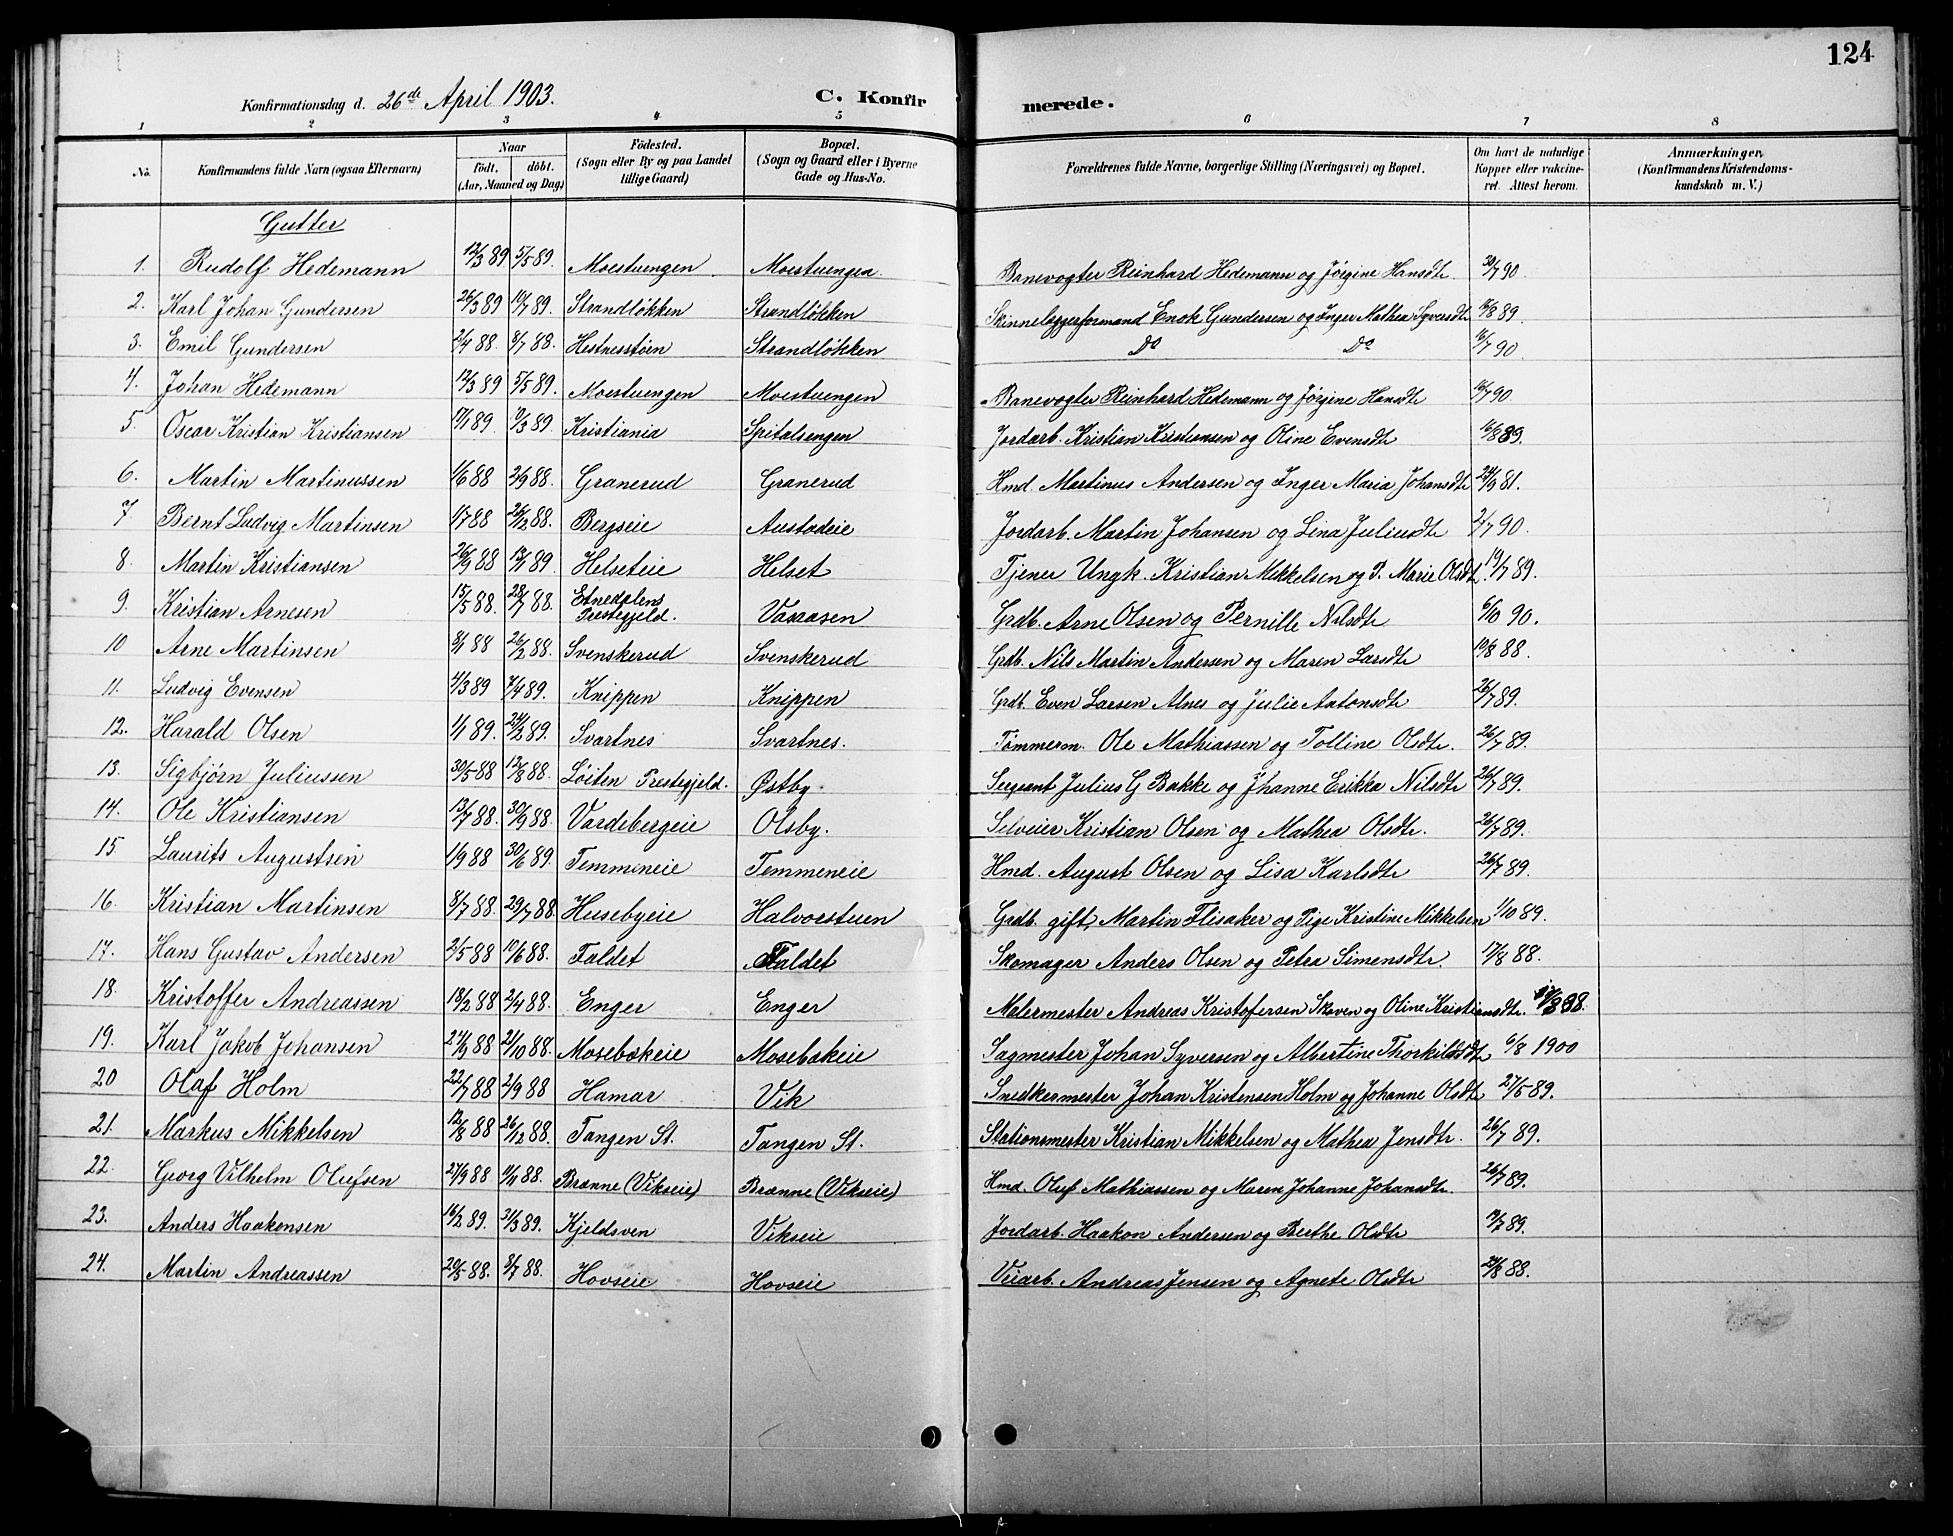 124
Konfirmationsdag d. 26de April 1903. C. Konfir merede.
1 2 3 4 5 6 7 8
No. Konfirmandens fulde Navn (ogsaa Efternavn) Naar födt. döbt. (Aar, Maaned og Dag) Födested. (Sogn eller By og paa Landet tillige Gaard) Bopæl. (Sogn og Gaard eller i Byerne Gade og Hus-No. Forældrenes fulde Navne, borgerlige Stilling (Næringsvei) og Bopæl. Om havt de naturlige Kopper eller vakcineret. Attest herom. Anmærkninger. (Konfirmandens Kristendomskundskab m. V.)
Gutter
1. Rudolf Hedemann 12/3 89 5/5 89. Moestuengen Moestuengen Banevogter Reinhard Hedemann og Jørgine Hansdtr 30/7 90
2. Karl Johan Gundersen 26/3 89 10/7 89. Strandløkken Strandløkken Skinnelæggerformand Enok Gundersen og Inger Mathea Syversdtr 16/8 89.
3. Emil Gundersen 2/4 88. 8/7 88. Hestnesstøen Strandløkken Do Do 16/7 90
4. Johan Hedemann 12/3 89 5/5 89. Moestuengen Moestuengen Banevogter Reinhard Hedemann og Jørgine Hansdtr 16/7 90
5. Oscar Kristian Kristiansen 17/1 89. 9/3 89. Kristiania Spitalsengen Jordarb. Kristian Kristiansen og Oline Evensdtr 16/8 89.
6. Martin Martinussen 1/6 88 2/9 88. Granerud Granerud Hmd. Martinus Andersen og Inger Maria Johansdtr 24/9 81.
7. Bernt Ludvig Martinsen 1/7 88 26/12 88. Bergseie Austadeie Jordarb. Martin Johansen og Lina Juliusdtr 2/7 90.
8. Martin Kristiansen 26/9 88 12/7 89. Helseteie Helset Tjener Ungk. Kristian Mikkelsen og P. Marie Olsdt. 19/7 89.
9. Kristian Arnesen 15/5 88. 28/7 88. Etnedalens Prestegjeld. Vaaraasen Grdb. Arne Olsen og Pernille Nilsdtr 6/10 90.
10 Arne Martinsen 8/1 88 26/2 88. Svenskerud Svenskerud Grdb. Nils Martin Andersen og Maren Larsdtr 19/8 88.
11. Ludvig Evensen 4/3 89 7/4 89. Knippen Knippen Grdb. Even Larsen Alnes og Julie Antonsdtr 26/7 89.
12. Harald Olsen 1/1 89. 24/2 89. Svartnes Svartnes. Tømmerm. Ole Mathiassen og Tolline Olsdtr. 26/7 89.
13. Sigbjørn Juliussen 30/5 88 12/8 88. Løiten Prestegjeld. Østby. Sergeant Julius G Bakke og Jhanne Erikka Nilsdtr 26/7 89.
14. Ole Kristiansen 13/7 88. 30/9 88 Vardebergeie Olsby. Selveier Kristian Olsen og Mathea Olsdtr. 26/7 89.
15 Laurits Augustsen 1/9 88 30/6 89. Temmineie Temmeneie Hmd. August Olsen og Lisa Karlsdtr 26/7 89.
16. Kristian Martinsen 8/7 88. 29/7 88. Husebyeie Halvorstuen Grdb. gift, Martin Flisaker og Pige Kristine Mikkelsen 1/10 89.
17. Hans Gustav Andersen 2/5 88 10/6 88. Faldet Faldet Skomager Anders Olsen og Petra Simensdtr. 17/8 88.
18. Kristoffer Andreassen 13/2 88 2/4 88. Enger Enger Malermester Andreas Kristofersen Skoven og Oline Kristiansdtr. 17/8 88.
19. Karl Jakob Johansen 24/9 88 21/10 88. Mosebækeie Mosebakeie Sagmester Johan Syversen og Albertine Thorkildsdtr 6/8 1900
20 Olaf Holm 22/7 88 2/9 88 Hamar Vik Snedkermester Johan Kristensen Holm og Johanne Olsdtr 27/5 89.
21. Markus Mikkelsen 12/8 88 26/12 88. Tangen St. Tangen St. Stationsmester Kristian Mikkelsen og Mathea Jensdtr. 26/7 89.
22. Georg Vilhelm Olufsen 27/9 88 11/11 88. Brænne (Vikseie) Brænne (Vikseie) Hmd. Oluf Mathiassen og Maren Johanne Johansdtr. 26/7 89.
23. Anders Haakensen 16/2 89. 31/3 89. Kjeldsven Vikseie Jordarb. Haakon Andersen og Berthe Olsdtr 19/7 89.
24. Martin Andreassen 20/5 88. 8/7 88. Hovseie Hovseie Veiarb. Andreas Jensen og Agnete Olsdtr 21/8 88.